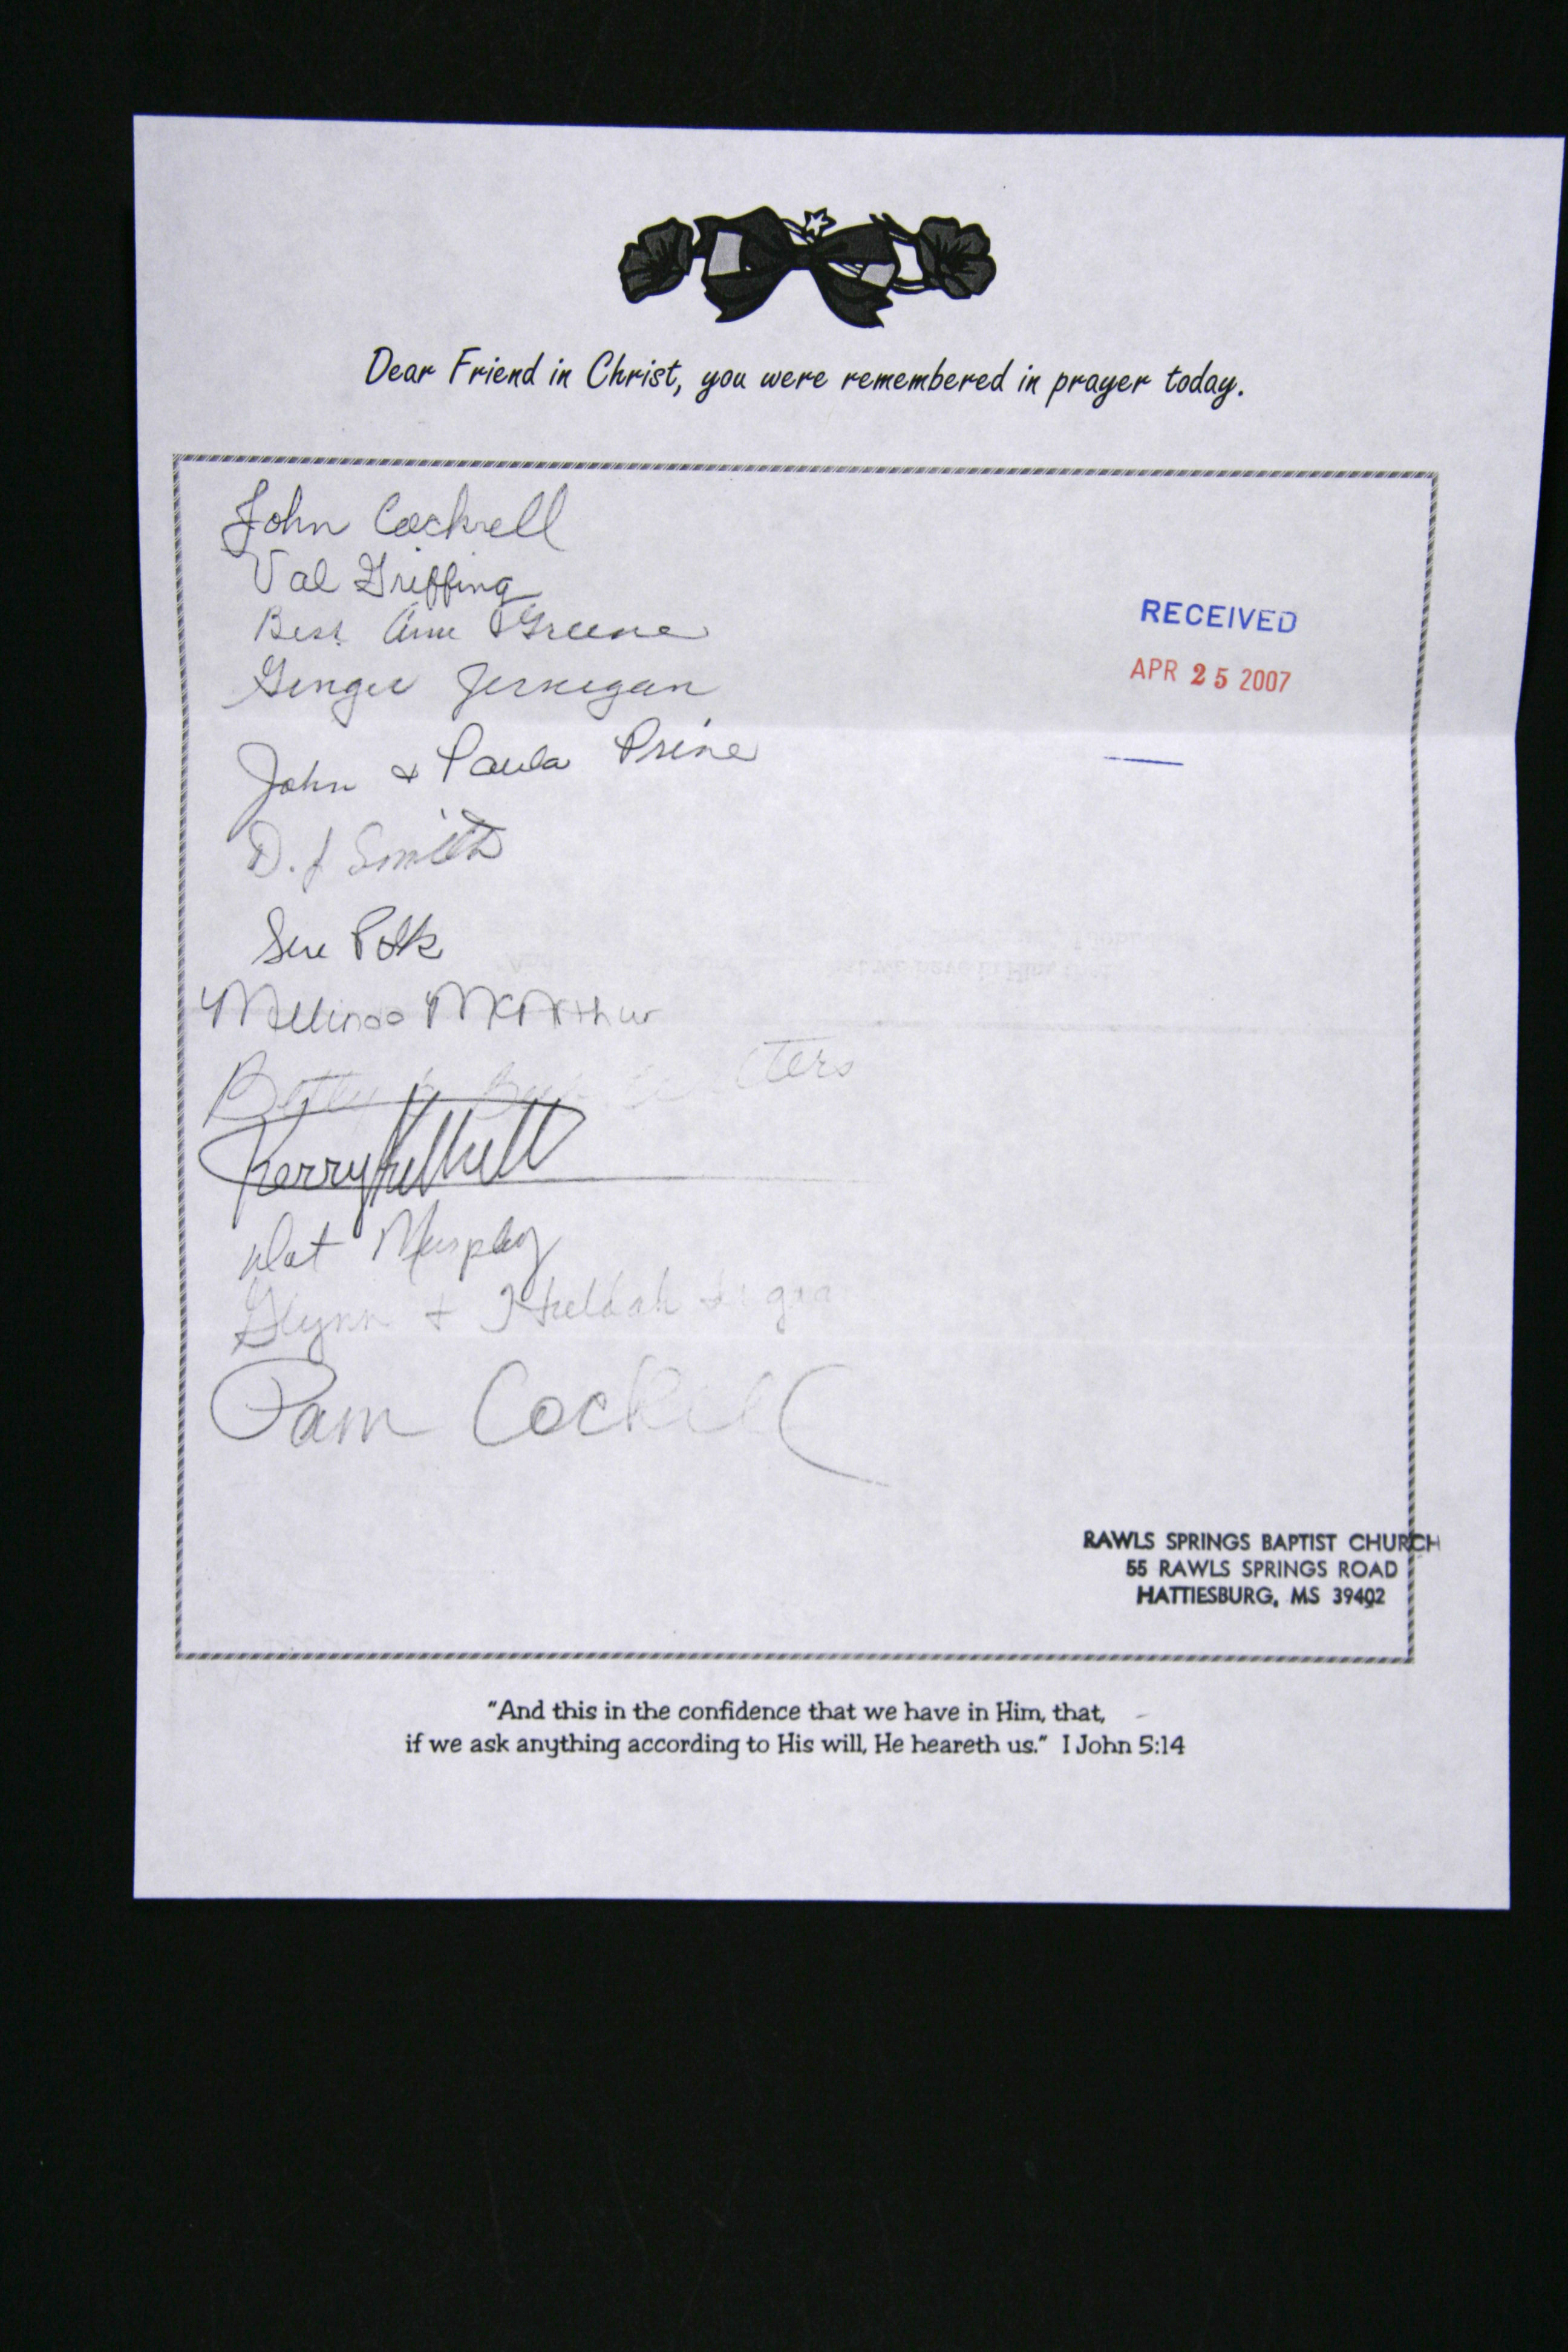 Dear Friend in Christ, you were remembered in prayer today.
John Cockrell
Val Griffing
Bess Ann Greene
Ginger Jernigan
RECEIVED
APR 25 2007
John & Paula Prine
D. J Smith
Sue Polk
Melinda McArthur
Betty
Kerry
Dot Murphy
Glynn & Huldah
Pam Cockrell
RAWLS SPRINGS BAPTIST CHURCH
55 RAWLS SPRINGS ROAD
HATTIESBURG, MS 39402
"And this in the confidence that we have in Him, that,
if we ask anything according to His will, He heareth us." I John 5:14